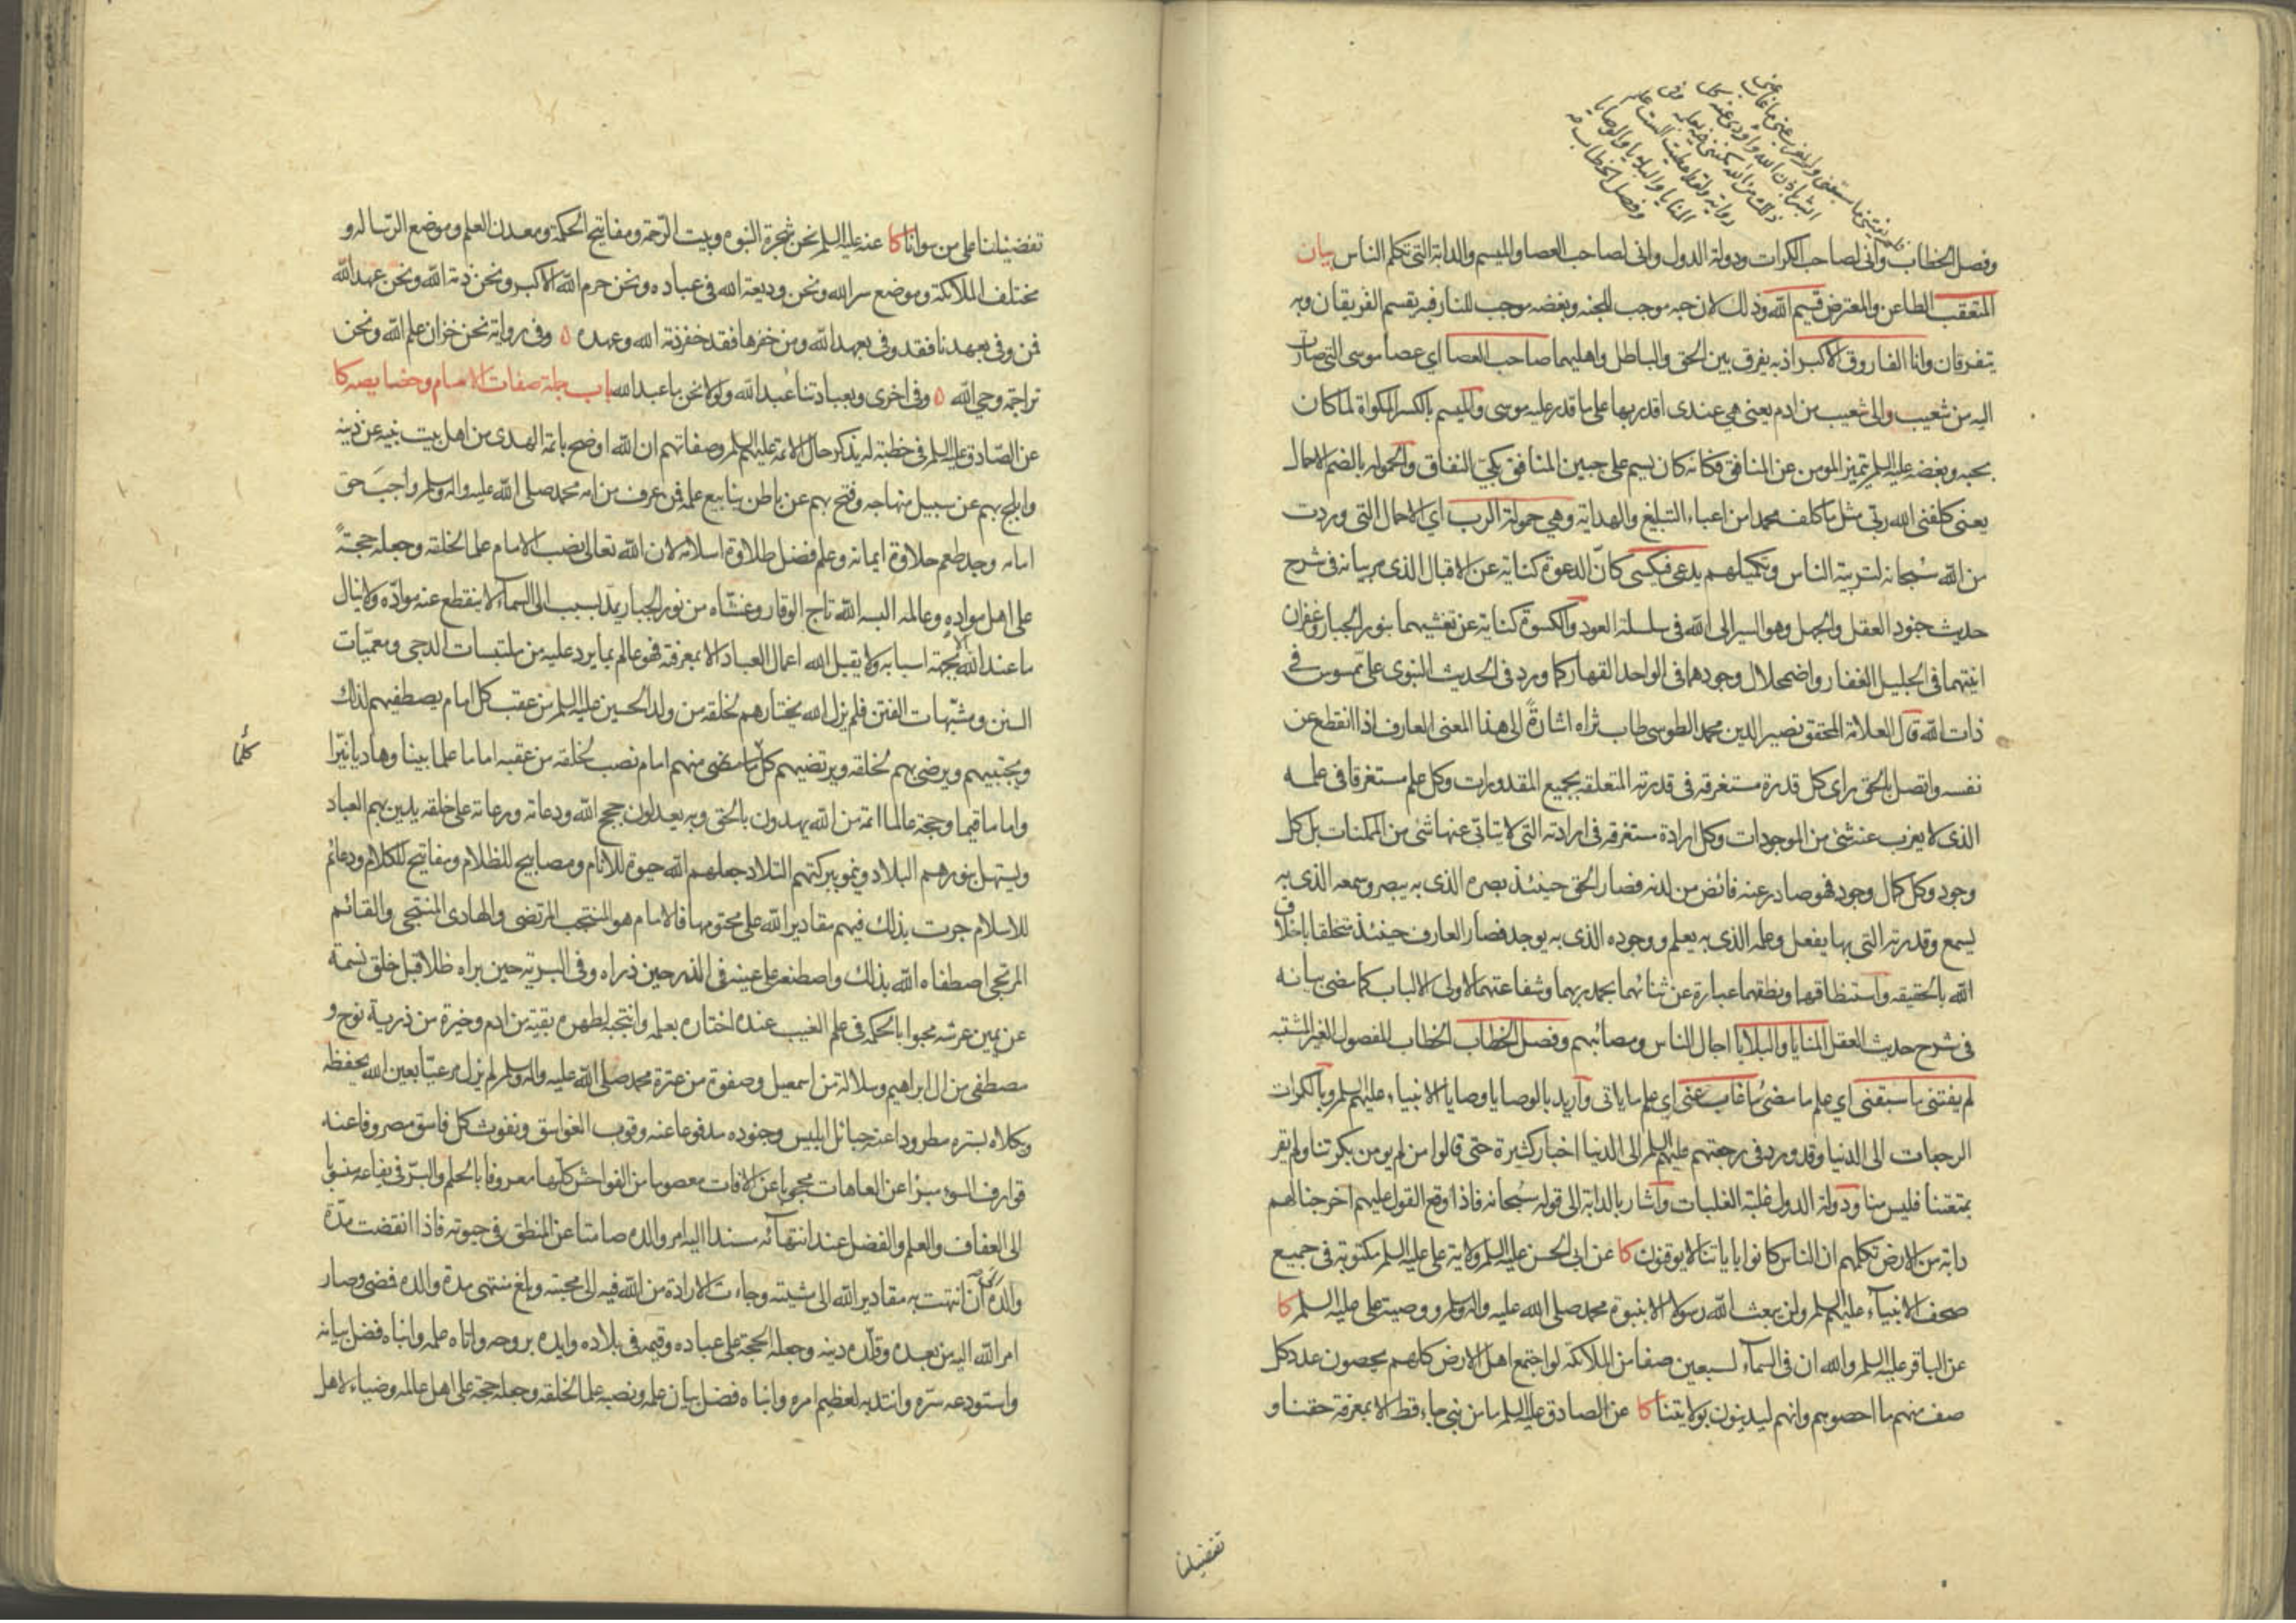 فلم يفتني ما سبقني ولم يعزب عني ما غاب عني
ابشر باذن الله واؤدي عنه كل
ذلك من الله مكنني فيه بعلمه وفي
رواية ولقد اعطيت الست علم
المنايا والبلايا والوصايا
وفصل الخطاب
وفصل الخطاب واني لصاحب الكرات ودولة الدول واني لصاحب العصا والميسم والدابة التي تكلم الناس بيان
المتعقب الطاعن والمعترض قسيم الله وذلك لان حبه موجب للجنه وبغضه موجب للنار فبه يقسم الفريقان وبه
يتفرقان وانا الفاروق الاكبر اذ به يفرق بين الحق والباطل واهليهما صاحب العصا اي عصا موسى التي صارت
اليه من شعيب والى شعيب من ادم يعني هي عندى اقدر بها على ما قدر عليه موسى والميسم بالكسر المكواة لما كان
بحبه وبغضه عليه السلم يتميز المومن عن المنافق فكانه كان يسم على جبين المنافق بكي النفاق والحموله بالضم الاحمال
يعنى كلفنى الله ربي مثل ما كلف محمدا من اعباء التبليغ والهداية وهي حمولة الرب اي الاحمال التي وردت
من الله سبحانه لتربية الناس وتكميلهم يدعى فيكسى كانّ الدعوة كناية عن الاقبال الذي مر بيانه في شرح
حديث جنود العقل والجهل وهو السير الى الله في سلسلة العود والكسوة كناية عن تغشيهما بنور الجبار وغفران
انيتهما في الجليل الغفار واضمحلال وجودهما في الواحد القهار كما ورد في الحديث النبوي علي ممسوس في
ذات الله قال العلامة المحقق نصير الدين محمد الطوسي طاب ثراه اشارةً الى هذا المعنى العارف اذا انقطع عن
نفسه واتصل بالحق راى كل قدرة مستغرقه في قدرته المتعلقه بجميع المقدورات وكل علم مستغرقا في علمه
الذى لا يعزب عنه شئ من الموجودات وكل ارادة مستغرقه في ارادته التى لا يتاتى عنها شئ من الممكنات بل كل
وجود وكل كمال وجود فهو صادر عنه فائض من لدنه فصار الحق حينئذ بصره الذى به يبصر وسمعه الذى به
يسمع وقدرته التي بها يفعل وعلمه الذى به يعلم ووجوده الذى به يوجد فصار العارف حينئذ متخلقا باخلاق
الله بالحقيقه واستنطاقهما ونطقهما عبارة عن ثنائهما بحمد ربهما وشفاعتهما لاولى الالباب كما مضى بيانه
في شرح حديث العقل المنايا والبلايا اجال الناس ومصائبهم وفصل الخطاب الخطاب المفصول الغير المشتبه
لم يفتنى ما سبقنى اي علم ما مضى ما غاب عنى اي علم ما ياتى واريد بالوصايا وصايا الانبياء عليهم السلم وبالكرات
الرجعات الى الدنيا وقد ورد في رجعتهم عليهم السلم الى الدنيا اخبار كثيرة حتى قالوا من لم يومن بكرتنا ولم يقر
بمتعتنا فليس منا ودولة الدول غلبة الغلبات واشار بالدابة الى قوله سبحانه فاذا وقع القول عليهم اخرجنا لهم
دابة من الارض تكلمهم ان الناس كانوا باياتنا لا يوقنون كا عن ابى الحسن عليه السلم ولاية على عليه السلم مكتوبة في جميع
صحف الانبياء عليهم السلم ولن يبعث الله رسولا الا بنبوة محمد صلى الله عليه واله وسلم ووصيه على عليه السلم كا
عن الباقر عليه السلم والله ان في السماء لسبعين صفا من الملائكة لو اجتمع اهل الارض كلهم يحصون عدد كل
صف منهم ما احصوهم وانهم ليدينون بولايتنا كا عن الصادق عليه السلم ما من نبي جاء قط الا بمعرفة حقنا و
تفضيلنا
تفضيلنا على من سوانا كا عنه عليه السلم نحن شجرة النبوه وبيت الرّحمة ومفاتيح الحكمة ومعدن العلم وموضع الرّسالة و
مختلف الملائكة وموضع سر الله ونحن وديعة الله في عباده ونحن حرم الله الاكبر ونحن ذمة الله ونحن عهد الله
فمن وفى بعهدنا فقد وفى بعهد الله ومن خفرها فقد خفر ذمة الله وعهده ۵ وفى رواية نحن خزان علم الله ونحن
تراجمة وحي الله ۵ وفى اخرى وبعبادتنا عُبد الله ولولا نحن ما عبد الله باب جملة صفات الامام وخصايصه كا
عن الصّادق عليه السلم في خطبة له يذكر حال الائمة عليهم السلم وصفاتهم ان الله اوضح بائمة الهدى من اهل بيت نبيه عن دينه
وابلج بهم عن سبيل منهاجه وفتح بهم عن باطن ينابيع علمه فمن عرف من امة محمد صلى الله عليه واله وسلم واجبَ حق
امامه وجد طعم حلاوة ايمانه وعلم فضل طلاوة اسلامه لان الله تعالى نصب الامام علما لخلقه وجعله حجةً
على اهل مواده وعالمه البسه الله تاج الوقار وغشّاه من نور الجبار يمدّ بسبب الى السماء لا ينقطع عنه موادّه ولا ينال
ما عند الله الا بجهة اسبابه ولا يقبل الله اعمال العباد الا بمعرفته فهو عالم بما يرد عليه من ملتبسات الدجى ومعمّيات
السنن ومشبّهات الفتن فلم يزل الله يختارهم لخلقه من ولد الحسين عليه السلم من عقب كل امام يصطفيهم لذلك
ويجتبيهم ويرضى بهم لخلقه ويرتضيهم كل ما مضى منهم امام نصب لخلقه من عقبه اماما علما بينا وهاديا نيّرا
كلّما
واماما قيما وحجة عالما ائمة من الله يهدون بالحق وبه يعدلون حجج الله ودعاته ورعاته على خلقه يدين بهم العباد
ويستهل بنورهم البلاد وينمو ببركتهم التلاد جعلهم الله حيوة للانام ومصابيح للظلام ومفاتيح للكلام ودعائم
للاسلام جرت بذلك فيهم مقادير الله على محتومها فالامام هو المنتجب المرتضى والهادى المنتجى والقائم
المرتجى اصطفاه الله بذلك واصطنعه على عينه في الذر حين ذراه وفى البرية حين براه ظلا قبل خلق نسمة
عن يمين عرشه محبوا بالحكمة في علم الغيب عنده اختاره بعلمه وانتجبه لطهره بقية من ادم وخيرة من ذرية نوح و
مصطفى من ال ابراهيم وسلالة من اسمعيل وصفوة من عترة محمد صلى الله عليه واله وسلم لم يزل مرعيّا بعين الله يحفظه
ويكلاه بستره مطرودا عنه حبائل ابليس وجنوده مدفوعا عنه وقوب الغواسق ونفوث كل فاسق مصروفا عنه
قوارف السوء مبرّا عن العاهات محجوبا عن الافات معصوما من الفواحش كلّها معروفا بالحلم والبرّ في يفاعه منسوبا
الى العفاف والعلم والفضل عند انتهائه مسندا اليه امر والده صامتا عن المنطق في حيوته فاذا انقضت مدّة
والده الى ان انتهت به مقادير الله الى مشيته وجاءت الارادة من الله فيه الى محبته وبلغ منتهى مدة والده فمضى وصار
امر الله اليه من بعده وقلّده دينه وجعله الحجة على عباده وقيمه في بلاده وايده بروحه واتاه علمه وانباه فضل بيانه
واستودعه سرّه وانتدبه لعظيم امره وانباه فضل بيان علمه ونصبه علما لخلقه وجعله حجة على اهل عالمه وضياء لاهل